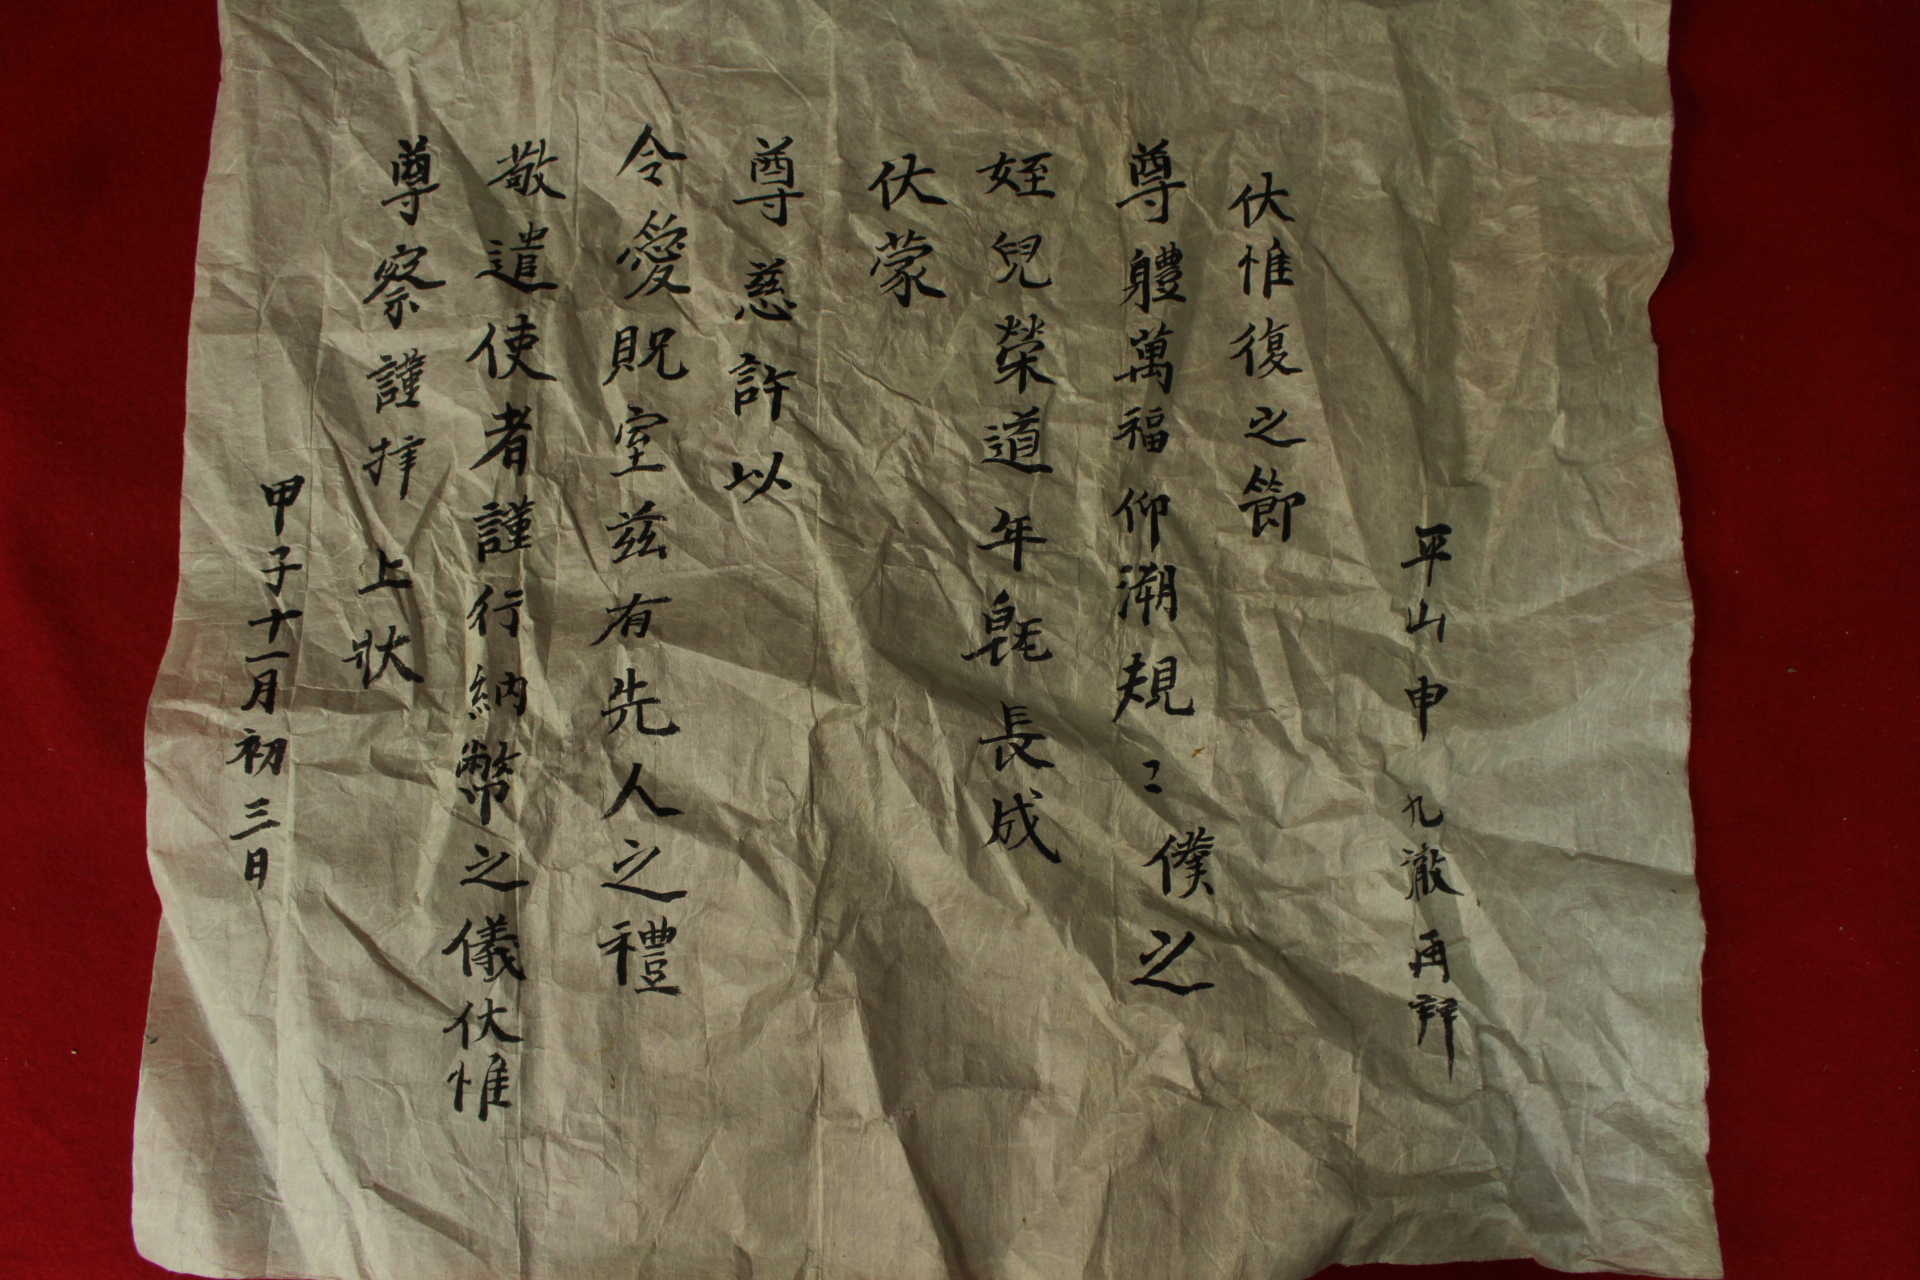 平山申九澈再拜
伏惟復之節
尊體萬福仰溯規〻僕之
姪兒榮道年旣長成
伏蒙
尊慈許以
令愛貺室玆有先人之禮
敬遣使者謹行納幣之儀伏惟
尊察謹拜 上狀
甲子十一月初三日